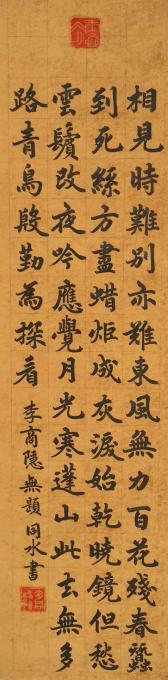 相見時難別亦難東風無力百花殘春蠶
到死絲方盡蜡炬成灰淚始乾曉鏡但愁
雲鬢改夜吟應覺月光寒蓬山此去無多
路青鳥殷勤為探看 李商隐無題同水書